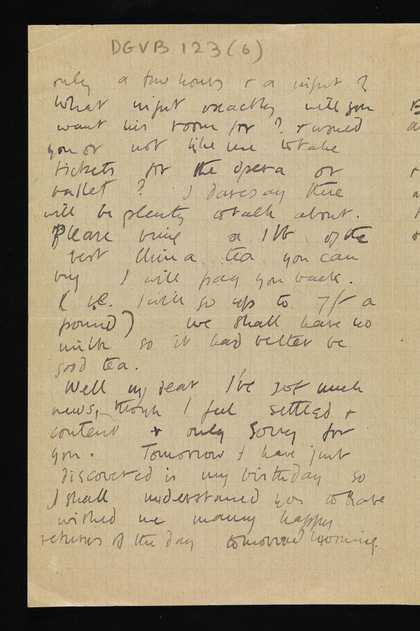 DGVB 123 (6)
only a few hours & a night?
What night exactly will you
want his room for? & would
you or not like me to take
tickets for the opera or
ballet? I daresay there
will be plenty to talk about.
Please bring a 1 lb of the
best China tea you can
buy I will pay you back.
(i.e. I will go up to 7/- a
pound) we shall have no
milk so it had better be
good tea.
Well my dear I've not much
news, though I feel settled &
content & only sorry for
you. Tomorrow I have just
discovered is my birthday so
I shall understand you to have
wished me many happy
returns of the day tomorrow morning.